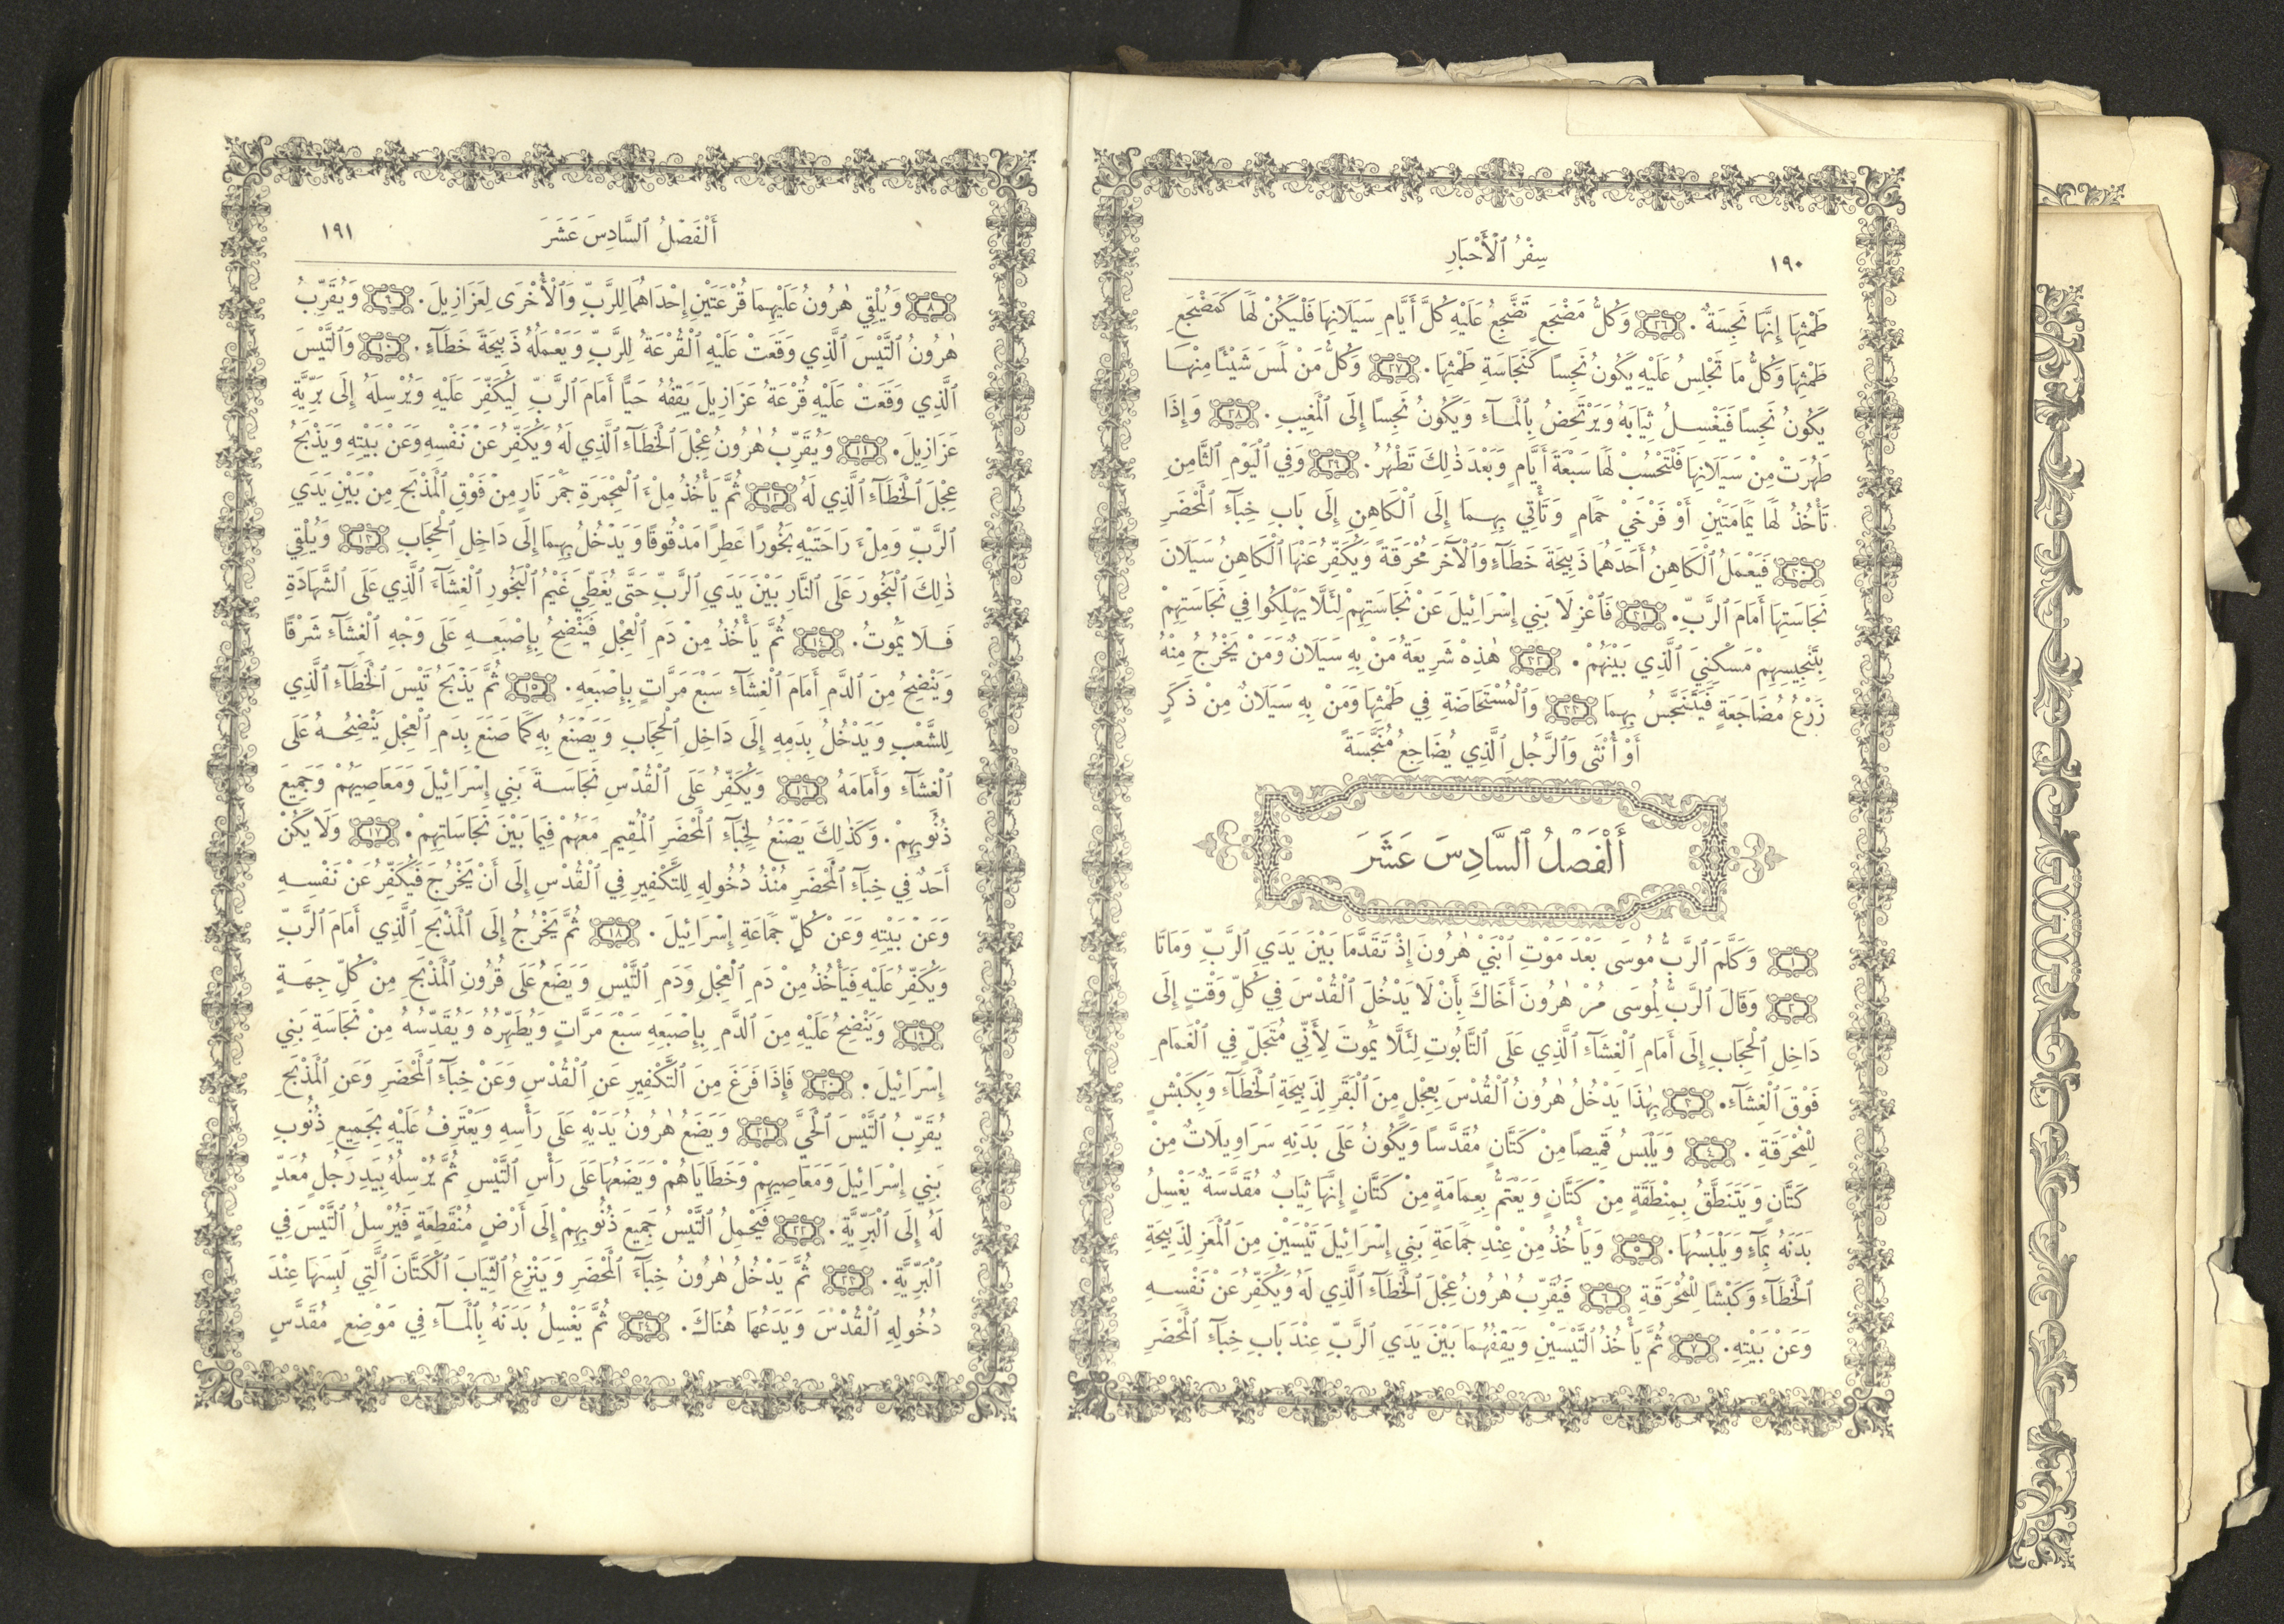 ١٩٠
سِفْرُ ٱلْأَحْبَارِ
طَمْثِهَا إِنَّهَا نَجِسَةٌ . ٢٦ وَكُلُّ مَضْجَعٍ تَضَّجِعُ عَلَيْهِ كُلَّ أَيَّامِ سَيَلَانِهَا فَلْيَكُنْ لَهَا كَمَضْجَعِ
طَمْثِهَا وَكُلُّ مَا تَجْلِسُ عَلَيْهِ يَكُونُ نَجِسًا كَنَجَاسَةِ طَمْثِهَا . ٢٧ وَكُلُّ مَنْ لَمَسَ شَيْئًا مِنْهَا
يَكُونُ نَجِسًا فَيَغْسِلُ ثِيَابَهُ وَيَرْتَحِضُ بِٱلْمَآءِ وَيَكُونُ نَجِسًا إِلَى ٱلْمَغِيبِ . ٢٨ وَإِذَا
طَهُرَتْ مِنْ سَيَلَانِهَا فَلْتَحْسُبْ لَهَا سَبْعَةَ أَيَّامٍ وَبَعْدَ ذٰلِكَ تَطْهُرُ . ٢٩ وَفِي ٱلْيَوْمِ ٱلثَّامِنِ
تَأْخُذُ لَهَا يَمَامَتَيْنِ أَوْ فَرْخَيْ حَمَامٍ وَتَأْتِي بِهِمَا إِلَى ٱلْكَاهِنِ إِلَى بَابِ خِبَآءِ ٱلْمَحْضَرِ
٣٠ فَيَعْمَلُ ٱلْكَاهِنُ أَحَدَهُمَا ذَبِيحَةَ خَطَآءٍ وَٱلْآخَرَ مُحْرَقَةً وَيُكَفِّرُ عَنْهَا ٱلْكَاهِنُ سَيَلَانَ
نَجَاسَتِهَا أَمَامَ ٱلرَّبِّ . ٣١ فَٱعْزِلَا بَنِي إِسْرَائِيلَ عَنْ نَجَاسَتِهِمْ لِئَلَّا يَهْلِكُوا فِي نَجَاسَتِهِمْ
بِتَنْجِيسِهِمْ مَسْكِنِيَ ٱلَّذِي بَيْنَهُمْ . ٣٢ هٰذِهِ شَرِيعَةُ مَنْ بِهِ سَيَلَانٌ وَمَنْ يَخْرُجُ مِنْهُ
زَرْعُ مُضَاجَعَةٍ فَيَتَنَجَّسُ بِهِمَا ٣٣ وَٱلْمُسْتَحَاضَةِ فِي طَمْثِهَا وَمَنْ بِهِ سَيَلَانٌ مِنْ ذَكَرٍ
أَوْ أُنْثَى وَٱلرَّجُلِ ٱلَّذِي يُضَاجِعُ مُنَجَّسَةً
أَلْفَصْلُ ٱلسَّادِسَ عَشَرَ
١ وَكَلَّمَ ٱلرَّبُّ مُوسَى بَعْدَ مَوْتِ ٱبْنَيْ هٰرُونَ إِذْ تَقَدَّمَا بَيْنَ يَدَيِ ٱلرَّبِّ وَمَاتَا
٢ وَقَالَ ٱلرَّبُّ لِمُوسَى مُرْ هٰرُونَ أَخَاكَ بِأَنْ لَا يَدْخُلَ ٱلْقُدْسَ فِي كُلِّ وَقْتٍ إِلَى
دَاخِلِ ٱلْحِجَابِ إِلَى أَمَامِ ٱلْغِشَآءِ ٱلَّذِي عَلَى ٱلتَّابُوتِ لِئَلَّا يَمُوتَ لِأَنِّي مُتَجَلٍّ فِي ٱلْغَمَامِ
فَوْقَ ٱلْغِشَآءِ . ٣ بِهٰذَا يَدْخُلُ هٰرُونُ ٱلْقُدْسَ بِعِجْلٍ مِنَ ٱلْبَقَرِ لِذَبِيحَةِ ٱلْخَطَآءِ وَبِكَبْشٍ
لِلْمُحْرَقَةِ . ٤ وَيَلْبَسُ قَمِيصًا مِنْ كَتَّانٍ مُقَدَّسًا وَيَكُونُ عَلَى بَدَنِهِ سَرَاوِيلَاتٌ مِنْ
كَتَّانٍ وَيَتَنَطَّقُ بِمِنْطَقَةٍ مِنْ كَتَّانٍ وَيَعْتَمُّ بِعِمَامَةٍ مِنْ كَتَّانٍ إِنَّهَا ثِيَابٌ مُقَدَّسَةٌ يَغْسِلُ
بَدَنَهُ بِمَآءٍ وَيَلْبَسُهَا . ٥ وَيَأْخُذُ مِنْ عِنْدِ جَمَاعَةِ بَنِي إِسْرَائِيلَ تَيْسَيْنِ مِنَ ٱلْمَعَزِ لِذَبِيحَةِ
ٱلْخَطَآءِ وَكَبْشًا لِلْمُحْرَقَةِ ٦ فَيُقَرِّبُ هٰرُونُ عِجْلَ ٱلْخَطَآءِ ٱلَّذِي لَهُ وَيُكَفِّرُ عَنْ نَفْسِهِ
وَعَنْ بَيْتِهِ . ٧ ثُمَّ يَأْخُذُ ٱلتَّيْسَيْنِ وَيَقِفُهُمَا بَيْنَ يَدَيِ ٱلرَّبِّ عِنْدَ بَابِ خِبَآءِ ٱلْمَحْضَرِ
أَلْفَصْلُ ٱلسَّادِسَ عَشَرَ
١٩١
٨ وَيُلْقِي هٰرُونُ عَلَيْهِمَا قُرْعَتَيْنِ إِحْدَاهُمَا لِلرَّبِّ وَٱلْأُخْرَى لِعَزَازِيلَ . ٩ وَيُقَرِّبُ
هٰرُونُ ٱلتَّيْسَ ٱلَّذِي وَقَعَتْ عَلَيْهِ ٱلْقُرْعَةُ لِلرَّبِّ وَيَعْمَلُهُ ذَبِيحَةَ خَطَآءٍ . ١٠ وَٱلتَّيْسَ
ٱلَّذِي وَقَعَتْ عَلَيْهِ قُرْعَةُ عَزَازِيلَ يَقِفُهُ حَيًّا أَمَامَ ٱلرَّبِّ لِيُكَفِّرَ عَلَيْهِ وَيُرْسِلَهُ إِلَى بَرِّيَّةِ
عَزَازِيلَ . ١١ وَيُقَرِّبُ هٰرُونُ عِجْلَ ٱلْخَطَآءِ ٱلَّذِي لَهُ وَيُكَفِّرُ عَنْ نَفْسِهِ وَعَنْ بَيْتِهِ وَيَذْبَحُ
عِجْلَ ٱلْخَطَآءِ ٱلَّذِي لَهُ ١٢ ثُمَّ يَأْخُذُ مِلْءَ ٱلْمِجْمَرَةِ جَمْرَ نَارٍ مِنْ فَوْقِ ٱلْمَذْبَحِ مِنْ بَيْنِ يَدَيِ
ٱلرَّبِّ وَمِلْءَ رَاحَتَيْهِ بَخُورًا عَطِرًا مَدْقُوقًا وَيَدْخُلُ بِهِمَا إِلَى دَاخِلِ ٱلْحِجَابِ ١٣ وَيُلْقِي
ذٰلِكَ ٱلْبَخُورَ عَلَى ٱلنَّارِ بَيْنَ يَدَيِ ٱلرَّبِّ حَتَّى يُغَطِّيَ غَيْمُ ٱلْبَخُورِ ٱلْغِشَآءَ ٱلَّذِي عَلَى ٱلشَّهَادَةِ
فَلَا يَمُوتُ . ١٤ ثُمَّ يَأْخُذُ مِنْ دَمِ ٱلْعِجْلِ فَيَنْضِحُ بِإِصْبَعِهِ عَلَى وَجْهِ ٱلْغِشَآءِ شَرْقًا
وَيَنْضِحُ مِنَ ٱلدَّمِ أَمَامَ ٱلْغِشَآءِ سَبْعَ مَرَّاتٍ بِإِصْبَعِهِ . ١٥ ثُمَّ يَذْبَحُ تَيْسَ ٱلْخَطَآءِ ٱلَّذِي
لِلشَّعْبِ وَيَدْخُلُ بِدَمِهِ إِلَى دَاخِلِ ٱلْحِجَابِ وَيَصْنَعُ بِهِ كَمَا صَنَعَ بِدَمِ ٱلْعِجْلِ يَنْضِحُهُ عَلَى
ٱلْغِشَآءِ وَأَمَامَهُ ١٦ وَيُكَفِّرُ عَلَى ٱلْقُدْسِ نَجَاسَةَ بَنِي إِسْرَائِيلَ وَمَعَاصِيَهُمْ وَجَمِيعَ
ذُنُوبِهِمْ . وَكَذٰلِكَ يَصْنَعُ لِخِبَآءِ ٱلْمَحْضَرِ ٱلْمُقِيمِ مَعَهُمْ فِيمَا بَيْنَ نَجَاسَاتِهِمْ . ١٧ وَلَا يَكُنْ
أَحَدٌ فِي خِبَآءِ ٱلْمَحْضَرِ مُنْذُ دُخُولِهِ لِلتَّكْفِيرِ فِي ٱلْقُدْسِ إِلَى أَنْ يَخْرُجَ فَيُكَفِّرُ عَنْ نَفْسِهِ
وَعَنْ بَيْتِهِ وَعَنْ كُلِّ جَمَاعَةِ إِسْرَائِيلَ . ١٨ ثُمَّ يَخْرُجُ إِلَى ٱلْمَذْبَحِ ٱلَّذِي أَمَامَ ٱلرَّبِّ
وَيُكَفِّرُ عَلَيْهِ فَيَأْخُذُ مِنْ دَمِ ٱلْعِجْلِ وَدَمِ ٱلتَّيْسِ وَيَضَعُ عَلَى قُرُونِ ٱلْمَذْبَحِ مِنْ كُلِّ جِهَةٍ
١٩ وَيَنْضِحُ عَلَيْهِ مِنَ ٱلدَّمِ بِإِصْبَعِهِ سَبْعَ مَرَّاتٍ وَيُطَهِّرُهُ وَيُقَدِّسُهُ مِنْ نَجَاسَةِ بَنِي
إِسْرَائِيلَ . ٢٠ فَإِذَا فَرَغَ مِنَ ٱلتَّكْفِيرِ عَنِ ٱلْقُدْسِ وَعَنْ خِبَآءِ ٱلْمَحْضَرِ وَعَنِ ٱلْمَذْبَحِ
يُقَرِّبُ ٱلتَّيْسَ ٱلْحَيَّ ٢١ وَيَضَعُ هٰرُونُ يَدَيْهِ عَلَى رَأْسِهِ وَيَعْتَرِفُ عَلَيْهِ بِجَمِيعِ ذُنُوبِ
بَنِي إِسْرَائِيلَ وَمَعَاصِيهِمْ وَخَطَايَاهُمْ وَيَضَعُهَا عَلَى رَأْسِ ٱلتَّيْسِ ثُمَّ يُرْسِلُهُ بِيَدِ رَجُلٍ مُعَدٍّ
لَهُ إِلَى ٱلْبَرِّيَّةِ . ٢٢ فَيَحْمِلُ ٱلتَّيْسُ جَمِيعَ ذُنُوبِهِمْ إِلَى أَرْضٍ مُنْقَطِعَةٍ فَيُرْسِلُ ٱلتَّيْسَ فِي
ٱلْبَرِّيَّةِ . ٢٣ ثُمَّ يَدْخُلُ هٰرُونُ خِبَآءَ ٱلْمَحْضَرِ وَيَنْزِعُ ٱلثِّيَابَ ٱلْكَتَّانَ ٱلَّتِي لَبِسَهَا عِنْدَ
دُخُولِهِ ٱلْقُدْسَ وَيَدَعُهَا هُنَاكَ . ٢٤ ثُمَّ يَغْسِلُ بَدَنَهُ بِٱلْمَآءِ فِي مَوْضِعٍ مُقَدَّسٍ